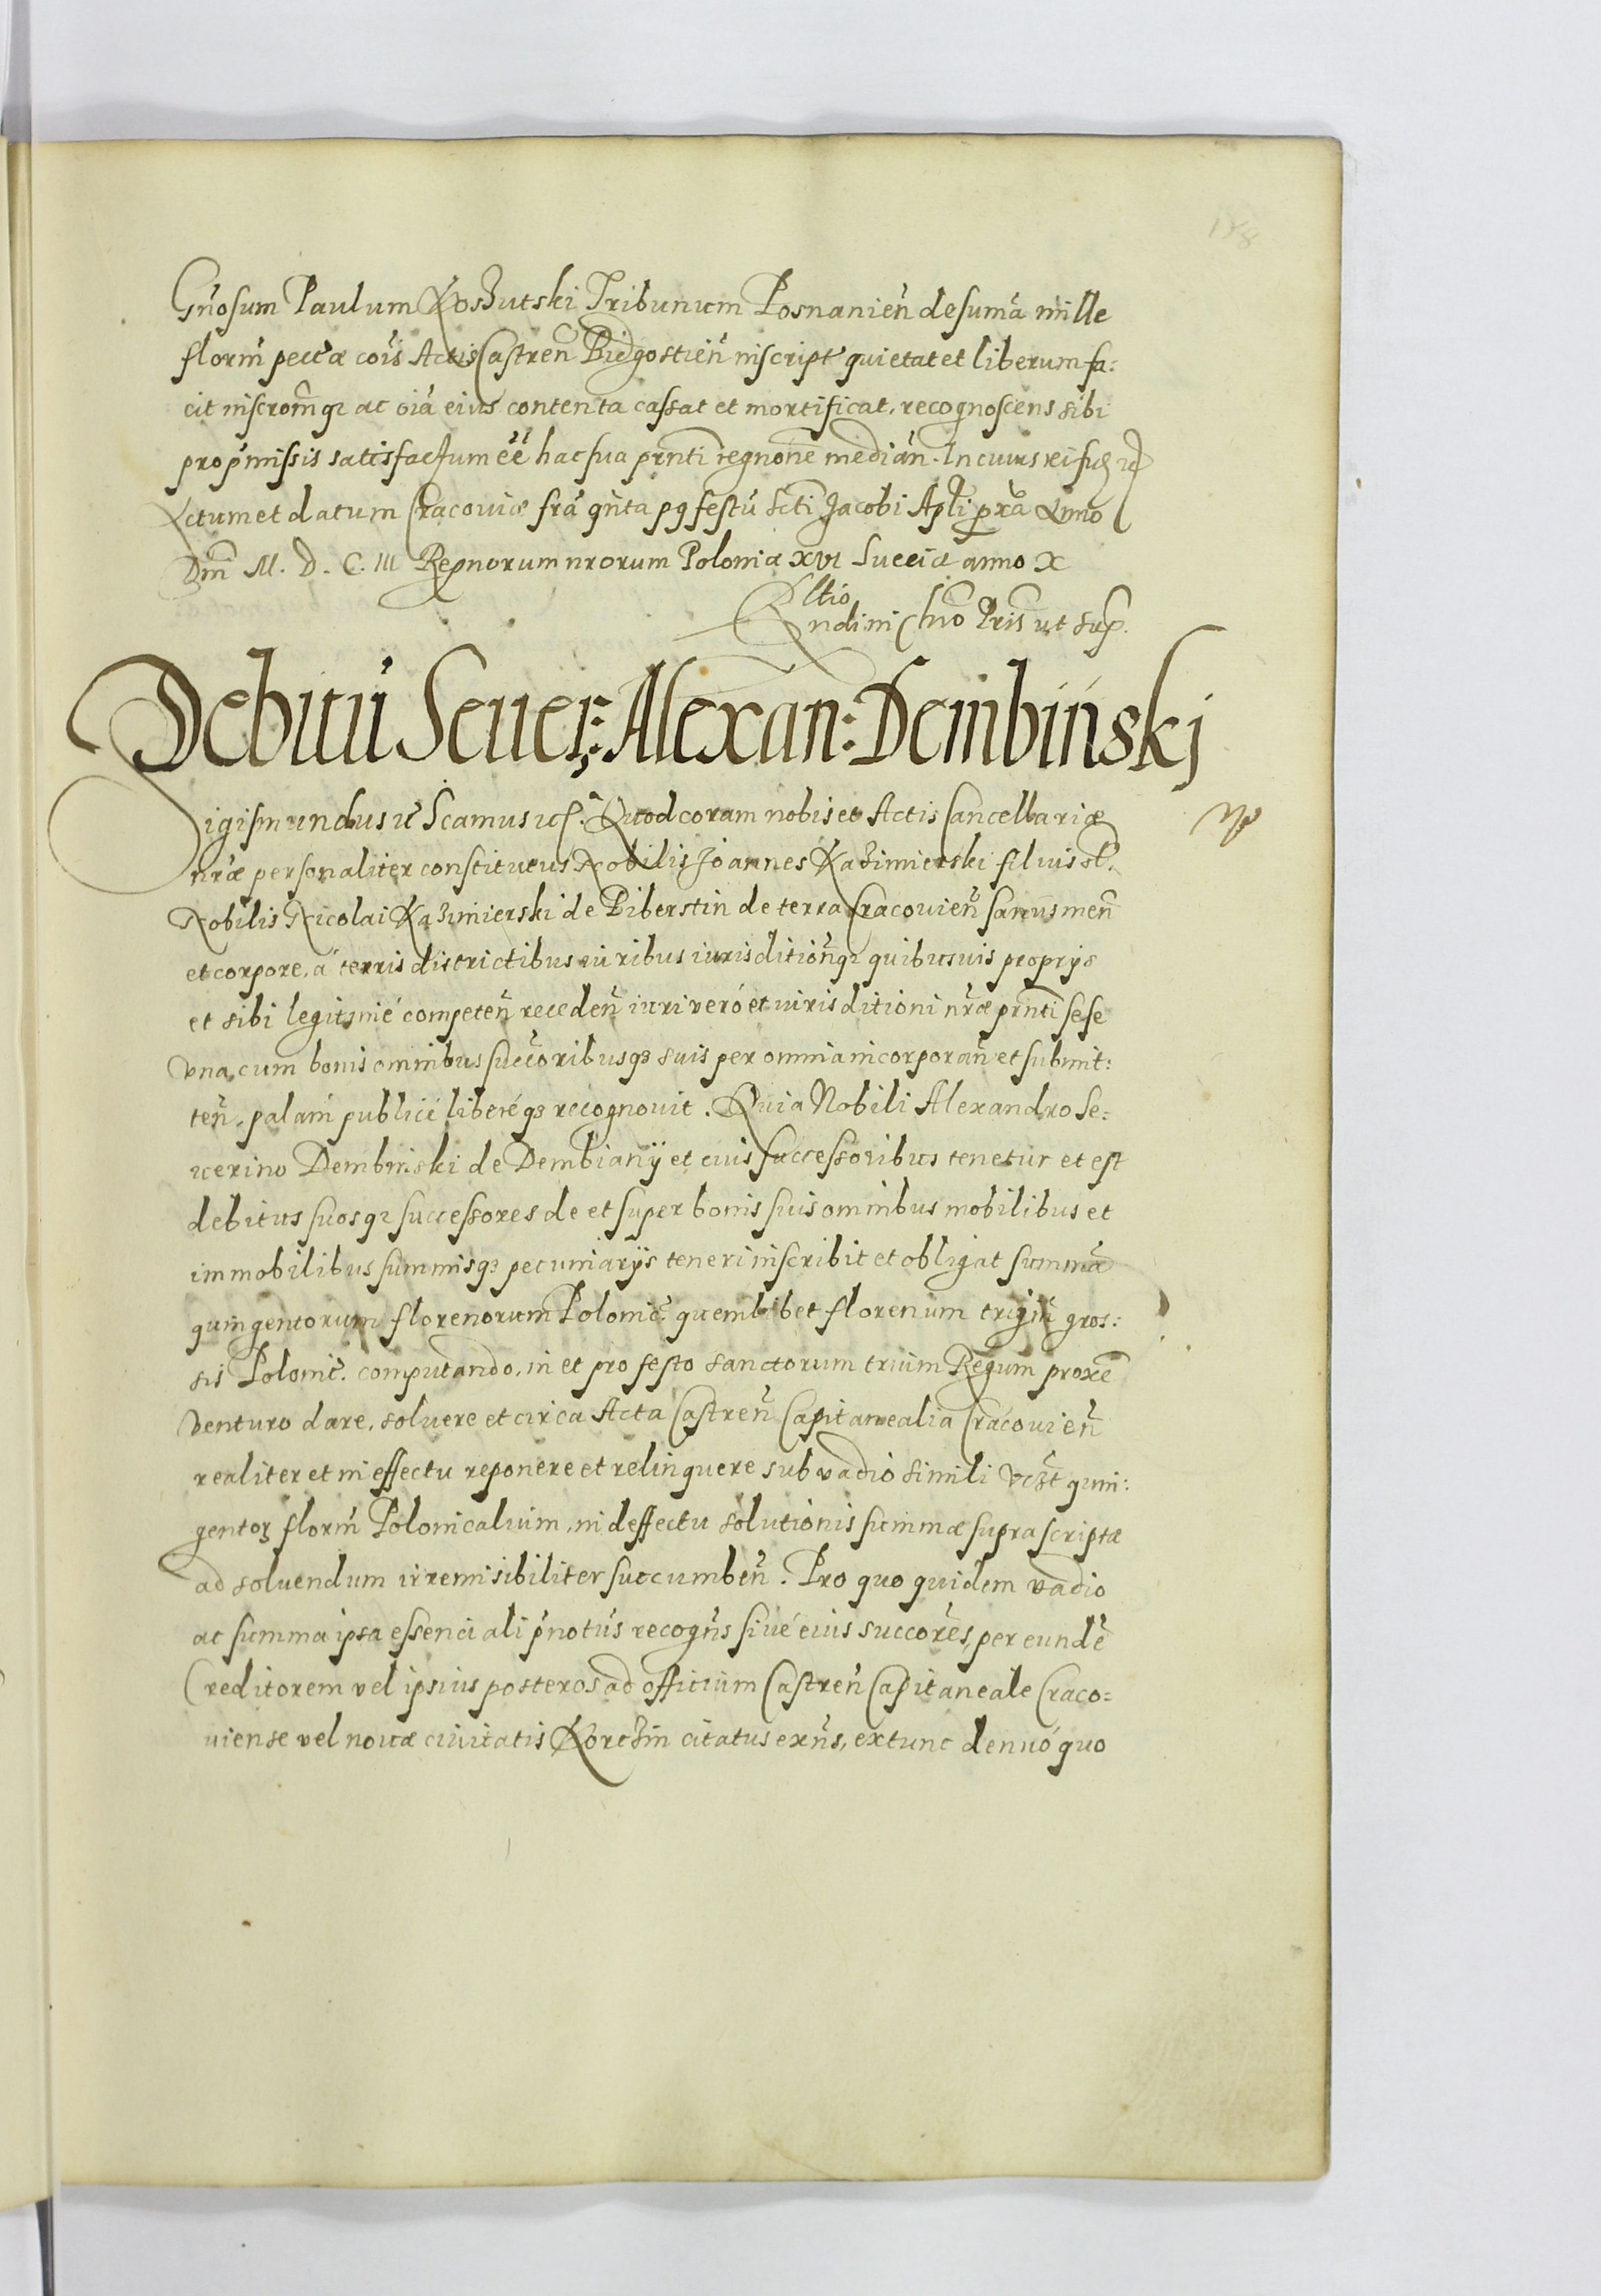 188
Gn̄osum Paulum Koszutski Tribunum Posnanien̄ de sum̄a mille
florn̄ pectæ cōis Actis Castren̄ Bidgostien̄ inscript̄ quietat et liberum fa:
cit inscrōmq₃ ac oīa eius contenta cassat et mortificat, recognoscens sibi
pro p̄missis satisfactum eē hac sua prn̄ti regnōne median̄. In cuius rei fid
Actum et datum Cracoviæ fr̄a qn̄ta pꝯ festū Scti Jacobi Apl̄i pxā Anno
Dm̄ M. D. C. III Regnorum nrorum Poloniæ XVI Sueciæ anno X
Rl̄tio
Rndi in Chr̄o Pr̄is ut sup.
Debitū Seuer: Alexan: Dembiński
Sigismundus rc̄ Scamus rc̄. Quod coram nobis et Actis Cancellariæ
nr̄æ personaliter constitutus Nobilis Joannes Kazimierski filius ol.
Nobilis Nicolai Kazimierski de Biberstin de terra Cracovien̄ sanus men̄
et corpore, á terris districtibus iuribus iurisdition̄q₃ quibusuis proprijs
et sibi legitimé competen̄ receden̄ iuri veró et iurisditioni nr̄æ prn̄ti sese
vna cum bonis omnibus succoribusq₃ suis per omnia incorporan̄ et submit:
ten̄, palam publicé liberéq₃ recognovit. Quia Nobili Alexandro Se:
uerino Dembinski de Dembiany et eius successoribus tenetur et est
debitus suosq₃ successores de et super bonis suis omnibus mobilibus et
immobilibus summisq₃ pecuniarijs teneri inscribit et obligat summā
quingentorum florenorum Polonic̄. quemlibet florenum trigin̄ gros:
sis Polonic̄. computando, in et pro festo Sanctorum trium Regum proxē
venturo dare, soluere et circa Acta Castren̄ Capitanealia Cracovien̄
realiter et in effectu reponere et relinquere sub vadio simili vczt̄ quin:
gentoꝝ florn̄ Polonicalium, in deffectu solutionis summæ supra scriptæ
ad soluendum irremisibiliter succumben̄. Pro quo quidem vadio
ac summa ipsa essenciali p̄notūs recogn̄s siué eius succorēs, per eundē
Creditorem vel ipsius posteros ad officium Castren̄ Capitaneale Craco:
uiense vel nouæ ciuitatis Korczin citatus exn̄s, extunc denuó quo